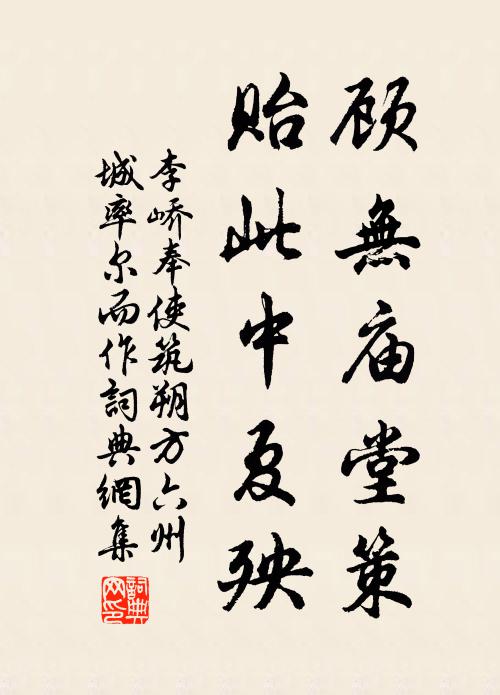 顾無庙堂策
贻此中夏殃
李峤奉使筑朔方六州
城率尔而作詞典網集
詞典网印